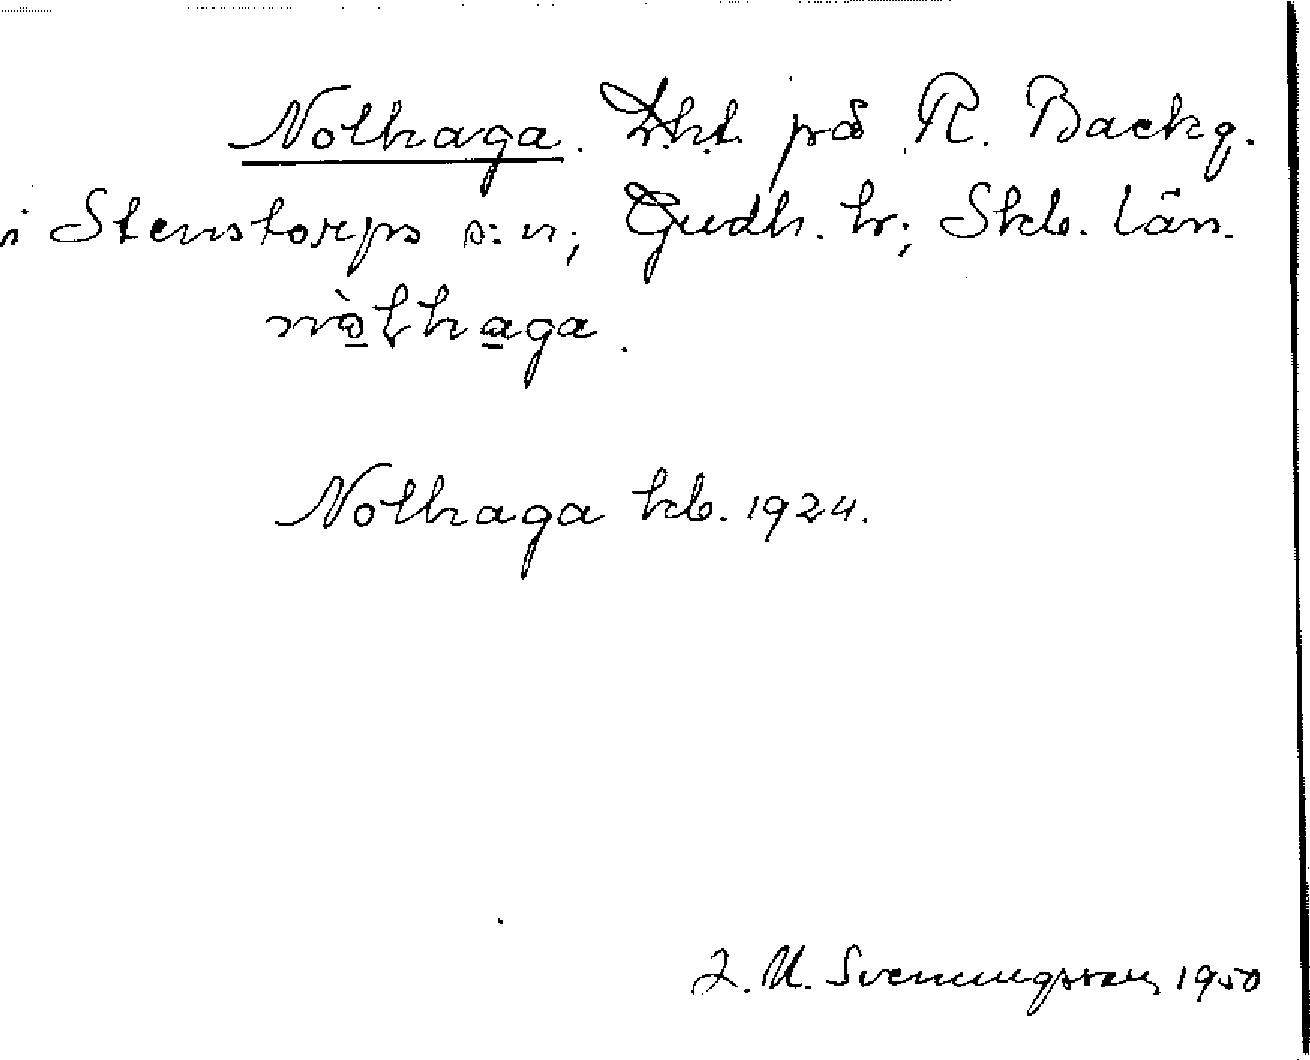 Nolhaga. Lht. på R. Backg.
i Stenstorps s:n; Gudh. hr; Skb. län.
nòlhaga.
Nolhaga kb. 1924.
Svenungsson 1950